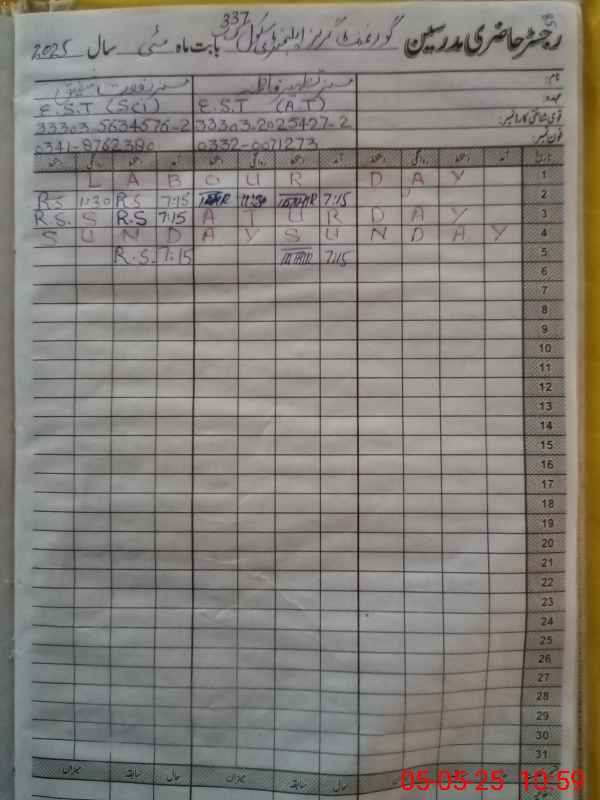 رجسٹر حاضری مدرسین گورنمنٹ گرلز ایلیمنٹری سکول 337 بابت ماہ مئی سال 2025
نام:
عہدہ: E.S.T (A.T) E.S.T (Sci)
قومی شناختی کارڈ نمبر: 33303.2025427-2 33303.5634576-2
فون نمبر: 0332-0071273 0341-8762380
تاریخ آمد دستخط روانگی دستخط آمد دستخط روانگی دستخط آمد دستخط روانگی دستخط
L A B O U R D A Y 1
R.S 11:30 R.S 7:15 11:30 7:15 2
R.S. S R.S 7:15 A T U R D A Y 3
S U N D A Y S U N D A Y 4
R.S. 7:15 7:15 5
6
7
8
9
10
11
12
13
14
15
16
17
18
19
20
21
22
23
24
25
26
27
28
29
30
31
حال سابقہ میزان حال سابقہ میزان
05-05-25 10:59